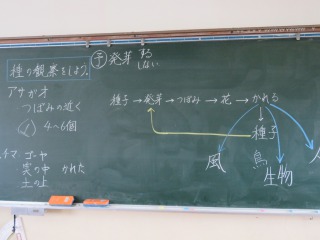 種の観察をしよう。
予 発芽 する
しない
アサガオ
つぼみの近く
4~6個
ゴーヤ
実の中 かれた
土の上
種子→発芽→つぼみ→花→かれる
種子
風
鳥
生物